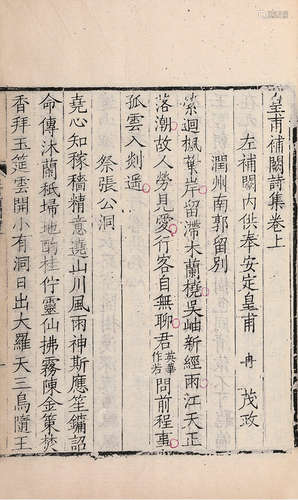 皇甫補闕詩集卷上
左補闕內供奉安定皇甫 冉 茂政
潤州南郭留別
縈迴楓葉岸留滯木蘭橈吳岫新經雨江天正
落潮故人勞見愛行客自無聊君英華作若問前程事
孤雲入剡遥
祭張公洞
堯心知稼穡精意遶山川風雨神斯應笙鏞詔
命傳沐蘭祇埽地酌桂佇靈仙拂霧陳金策焚
香拜玉筵雲開小有洞日出大羅天三鳥隨王